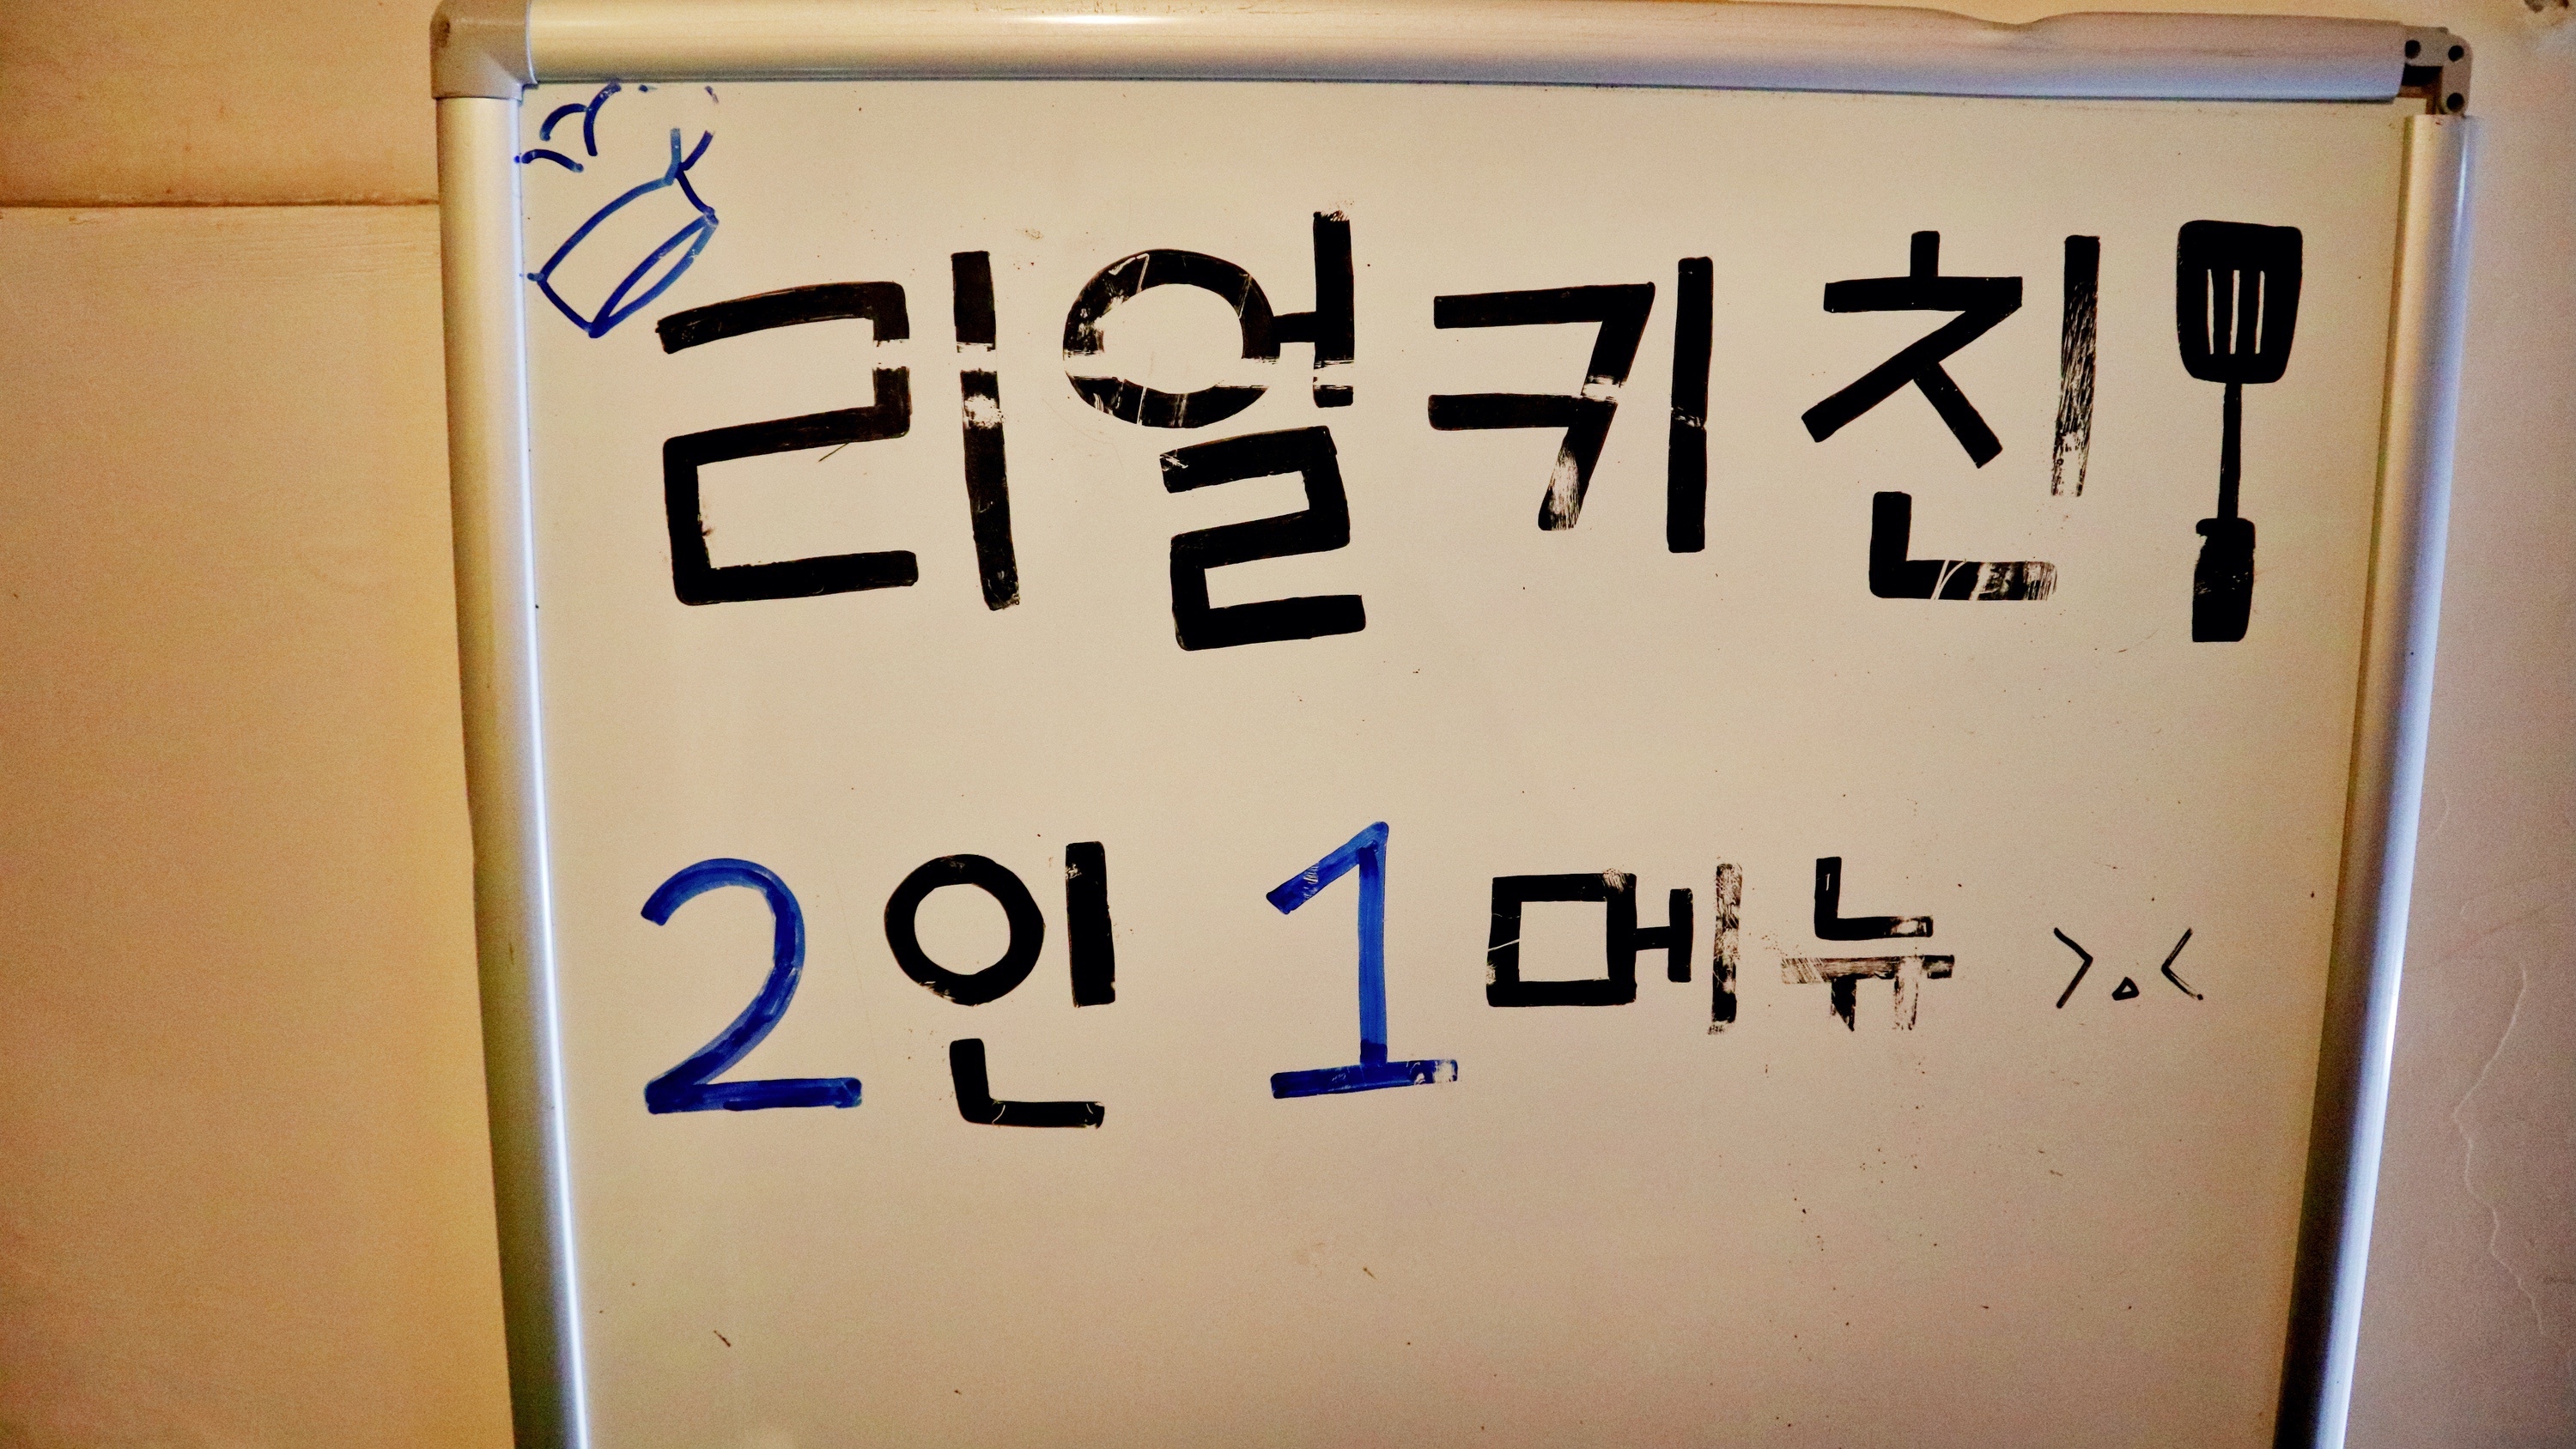 리얼키친
2인 1메뉴 >.<